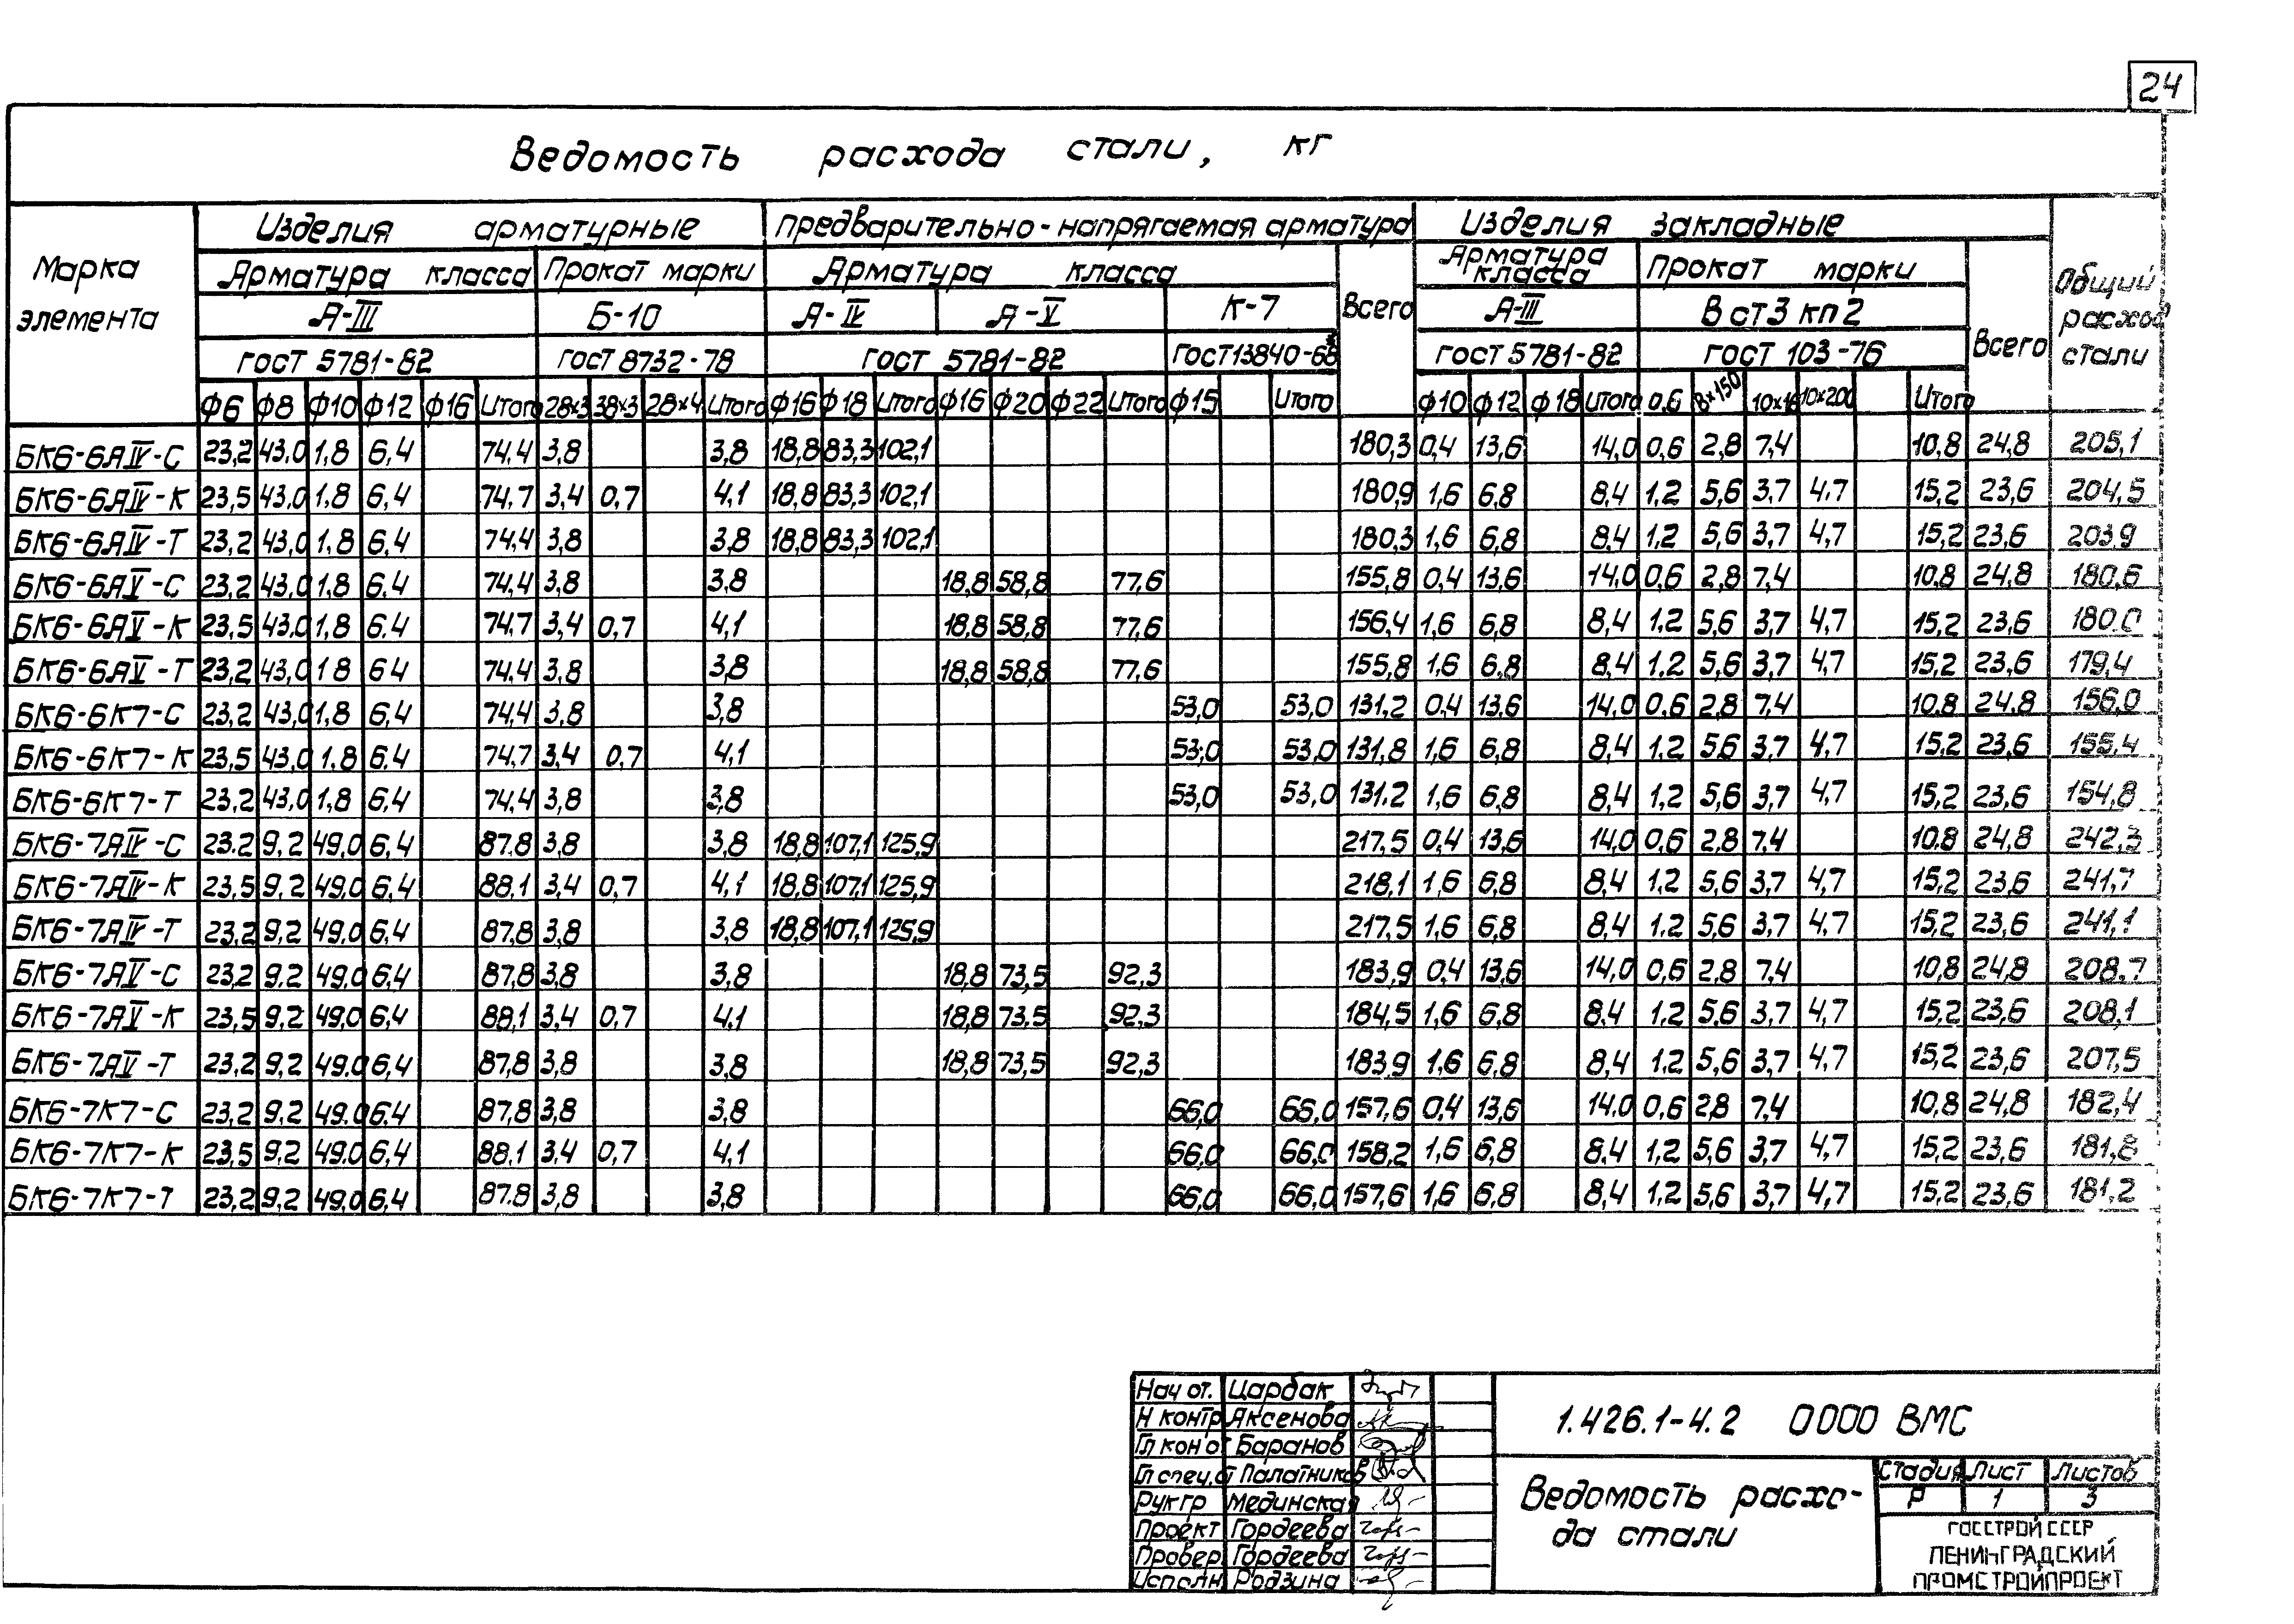 24
Ведомость расхода стали, кг
Марка элемента
Изделия арматурные
предварительно-напрягаемая арматура
Изделия закладные
Общий расход стали
Арматура класса
Прокат марки
Арматура класса
Всего
Арматура класса
Прокат марки
Всего
А-III
Б-10
А-IV
А-V
К-7
А-III
В ст3 кп2
ГОСТ 5781-82
ГОСТ 8732-78
ГОСТ 5781-82
ГОСТ 13840-68
ГОСТ 5781-82
ГОСТ 103-76
ф6 ф8 ф10 ф12 ф16 Итого 28×3 38×3 28×4 Итого ф16 ф18 Итого ф16 ф20 ф22 Итого ф15 Итого ф10 ф12 ф18 Итого 0.6 8×150 10×200 Итого
БК6-6АIV-С 23,2 43,0 1,8 6,4 74,4 3,8 3,8 18,8 83,3 102,1 180,3 0,4 13,6 14,0 0,6 2,8 7,4 10,8 24,8 205,1
БК6-6АIV-К 23,5 43,0 1,8 6,4 74,7 3,4 0,7 4,1 18,8 83,3 102,1 180,9 1,6 6,8 8,4 1,2 5,6 3,7 4,7 15,2 23,6 204,5
БК6-6АIV-Т 23,2 43,0 1,8 6,4 74,4 3,8 3,8 18,8 83,3 102,1 180,3 1,6 6,8 8,4 1,2 5,6 3,7 4,7 15,2 23,6 203,9
БК6-6АV-С 23,2 43,0 1,8 6,4 74,4 3,8 3,8 18,8 58,8 77,6 155,8 0,4 13,6 14,0 0,6 2,8 7,4 10,8 24,8 180,6
БК6-6АV-К 23,5 43,0 1,8 6,4 74,7 3,4 0,7 4,1 18,8 58,8 77,6 156,4 1,6 6,8 8,4 1,2 5,6 3,7 4,7 15,2 23,6 180,0
БК6-6АV-Т 23,2 43,0 1 8 6 4 74,4 3,8 3,8 18,8 58,8 77,6 155,8 1,6 6,8 8,4 1,2 5,6 3,7 4,7 15,2 23,6 179,4
БК6-6К7-С 23,2 43,0 1,8 6,4 74,4 3,8 3,8 53,0 53,0 131,2 0,4 13,6 14,0 0,6 2,8 7,4 10,8 24,8 156,0
БК6-6К7-К 23,5 43,0 1,8 6,4 74,7 3,4 0,7 4,1 53,0 53,0 131,8 1,6 6,8 8,4 1,2 5,6 3,7 4,7 15,2 23,6 155,4
БК6-6К7-Т 23,2 43,0 1,8 6,4 74,4 3,8 3,8 53,0 53,0 131,2 1,6 6,8 8,4 1,2 5,6 3,7 4,7 15,2 23,6 154,8
БК6-7АIV-С 23,2 9,2 49,0 6,4 87,8 3,8 3,8 18,8 107,1 125,9 217,5 0,4 13,6 14,0 0,6 2,8 7,4 10,8 24,8 242,3
БК6-7АIV-К 23,5 9,2 49,0 6,4 88,1 3,4 0,7 4,1 18,8 107,1 125,9 218,1 1,6 6,8 8,4 1,2 5,6 3,7 4,7 15,2 23,6 241,7
БК6-7АIV-Т 23,2 9,2 49,0 6,4 87,8 3,8 3,8 18,8 107,1 125,9 217,5 1,6 6,8 8,4 1,2 5,6 3,7 4,7 15,2 23,6 241,1
БК6-7АV-С 23,2 9,2 49,0 6,4 87,8 3,8 3,8 18,8 73,5 92,3 183,9 0,4 13,6 14,0 0,6 2,8 7,4 10,8 24,8 208,7
БК6-7АV-К 23,5 9,2 49,0 6,4 88,1 3,4 0,7 4,1 18,8 73,5 92,3 184,5 1,6 6,8 8,4 1,2 5,6 3,7 4,7 15,2 23,6 208,1
БК6-7АV-Т 23,2 9,2 49,0 6,4 87,8 3,8 3,8 18,8 73,5 92,3 183,9 1,6 6,8 8,4 1,2 5,6 3,7 4,7 15,2 23,6 207,5
БК6-7К7-С 23,2 9,2 49,0 6,4 87,8 3,8 3,8 66,0 66,0 157,6 0,4 13,6 14,0 0,6 2,8 7,4 10,8 24,8 182,4
БК6-7К7-К 23,5 9,2 49,0 6,4 88,1 3,4 0,7 4,1 66,0 66,0 158,2 1,6 6,8 8,4 1,2 5,6 3,7 4,7 15,2 23,6 181,8
БК6-7К7-Т 23,2 9,2 49,0 6,4 87,8 3,8 3,8 66,0 66,0 157,6 1,6 6,8 8,4 1,2 5,6 3,7 4,7 15,2 23,6 181,2
Нач от. Царбак
Н контр Аксенова
Гл кон от Баранов
Гл спец.от Палатников
Рук гр Мединская
Проект Гордеева
Провер. Гордеева
Исполн Родзина
1.426.1-4.2 0000 ВМС
Ведомость расхо-
да стали
Стадия Лист Листов
Р 1 3
ГОССТРОЙ СССР
ЛЕНИНГРАДСКИЙ
ПРОМСТРОЙПРОЕКТ